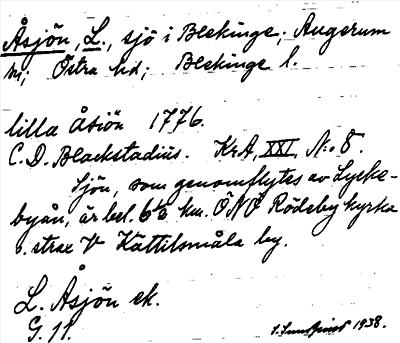 Åsjön, L., sjö i Blekinge; Augerum
sn; Östra hd; Blekinge l.
lilla Åsiön 1776.
C. D. Blackstadius. KrA, XXI, N:o 8.
Sjön, som genomflytes av Lycke-
byån, är bel. 6½ km. ÖNÖ Rödeby kyrka
o. strax V Kättilsmåla by.
L. Åsjön ek.
G. 11.
1938.